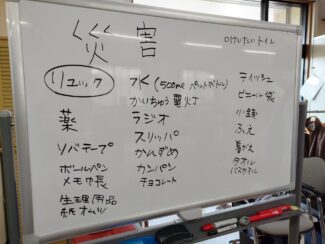 災害
のけいたいトイレ
リュック
薬
ソバテープ
ボールペン
メモ帳
生理用品
紙オムツ
水(500mℓ ペットボトル)
かいちゅう電灯
ラジオ
スリッパ
かんずめ
カンパン
チョコレート
ティッシュ
ビニール袋
小銭
ふえ
着がえ
タオル
バスタオル